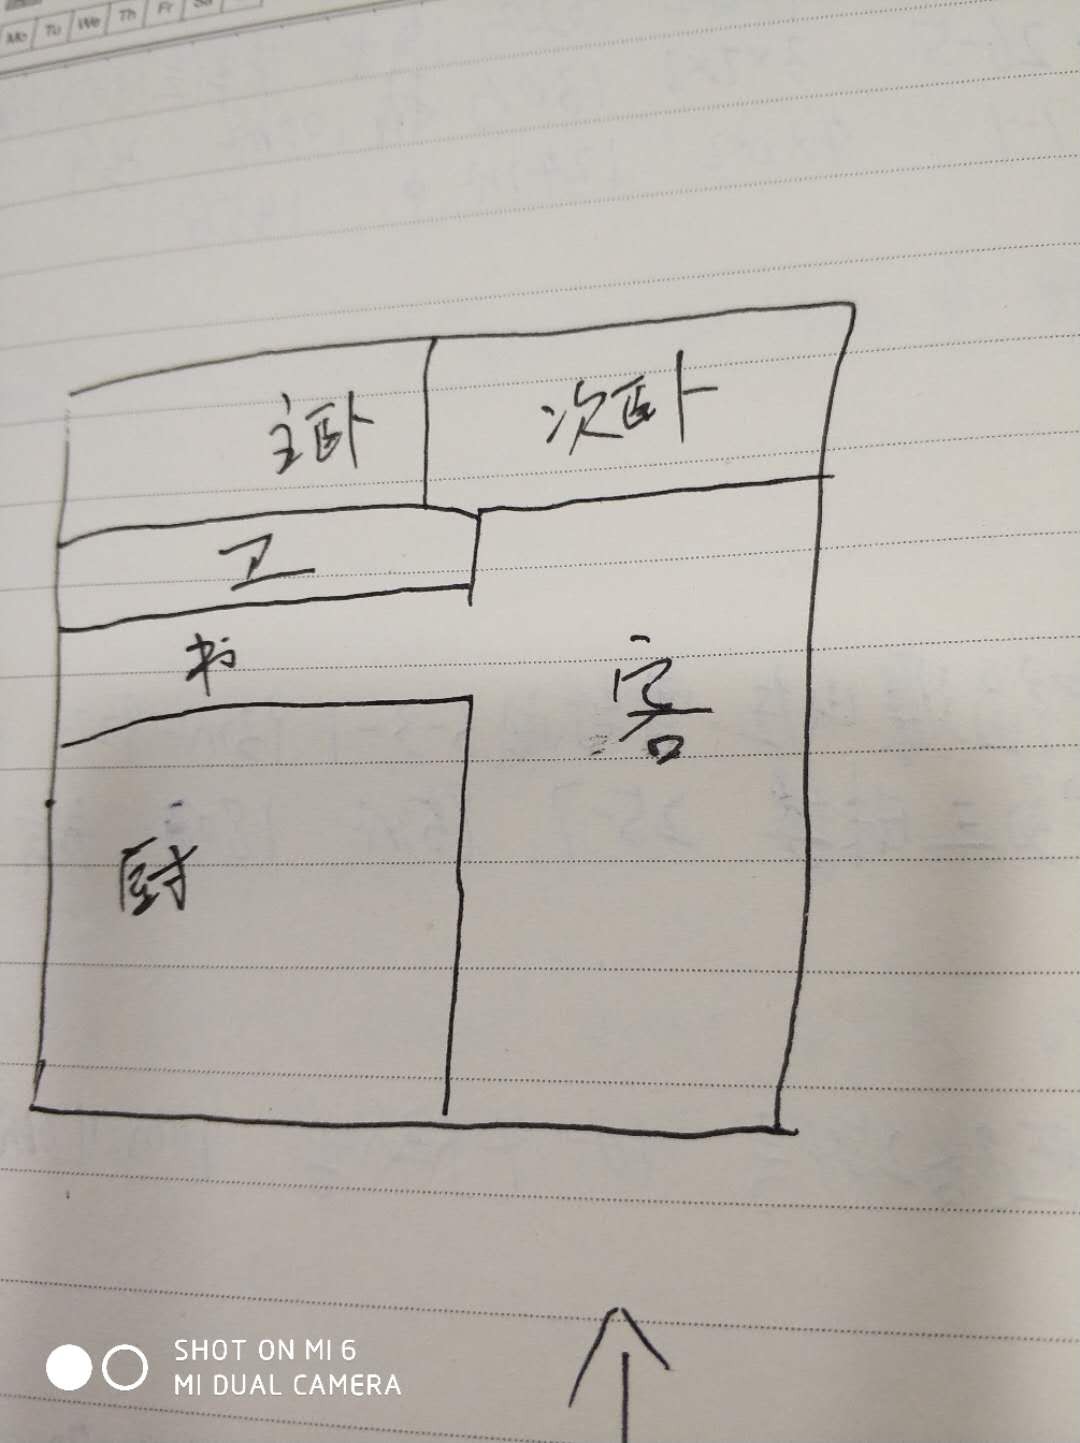 Mo Tu We Th Fr Sa
主卧 次卧
卫
书
客
厨
SHOT ON MI 6
MI DUAL CAMERA